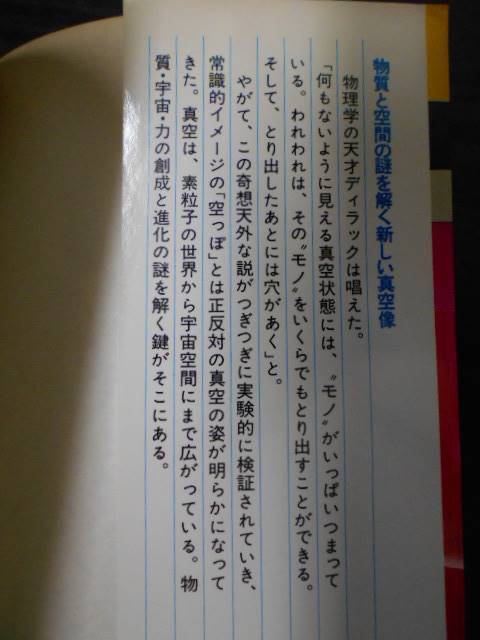 物質と空間の謎を解く新しい真空像
物理学の天才ディラックは唱えた。
「何もないように見える真空状態には、〝モノ〟がいっぱいつまって
いる。われわれは、その〝モノ〟をいくらでもとり出すことができる。
そして、とり出したあとには穴があく」と。
やがて、この奇想天外な説がつぎつぎに実験的に検証されていき、
常識的イメージの「空っぽ」とは正反対の真空の姿が明らかになって
きた。真空は、素粒子の世界から宇宙空間にまで広がっている。物
質・宇宙・力の創成と進化の謎を解く鍵がそこにある。